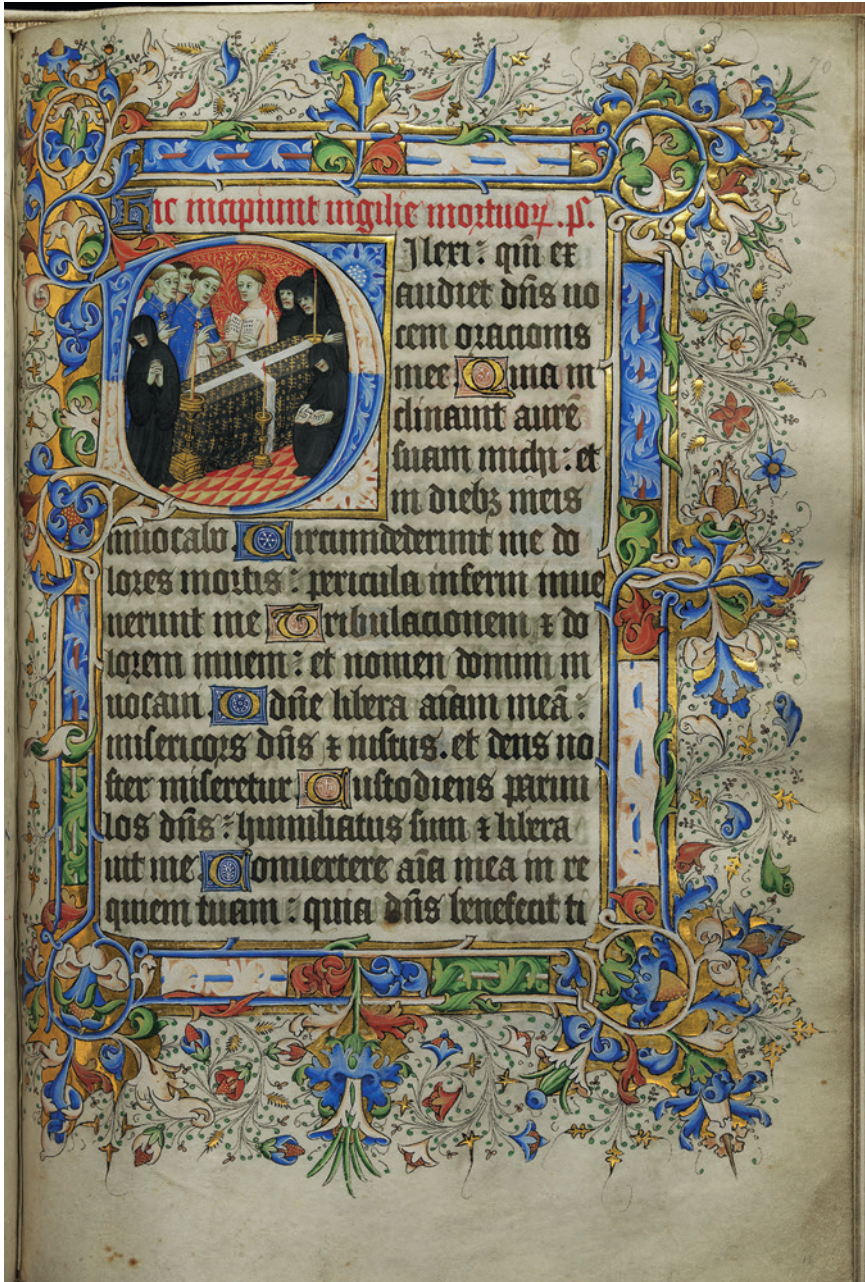 70
Hic incipiunt vigilie mortuoꝝ. ps.
Dilexi: qm̄ ex
audiet dn̄s uo
cem oracionis
mee. Quia in
clinauit aurē
suam michi: et
in diebꝫ meis
inuocabo Circumdederunt me do
lores mortis: pericula inferni inue
nerunt me Tribulacionem ⁊ do
lorem inueni: et nomen domini in
uocaui O dn̄e libera aīam meā:
misericors dn̄s ⁊ iustus. et deus no
ster miseretur Custodiens paruu
los dn̄s: humiliatus sum ⁊ libera
uit me Conuertere aīa mea in re
quiem tuam: quia dn̄s benefecit ti